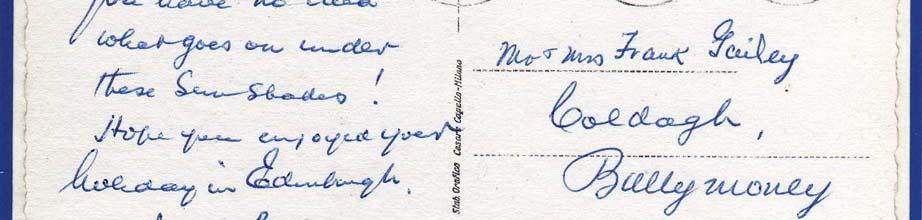 you have no need
what goes on under
these Sun-shades!
Hope you enjoyed your
holiday in Edinburgh.
Stab. Grafico Cesare Capello - Milano
Mr & Mrs Frank Gailey
Coldagh,
Ballymoney